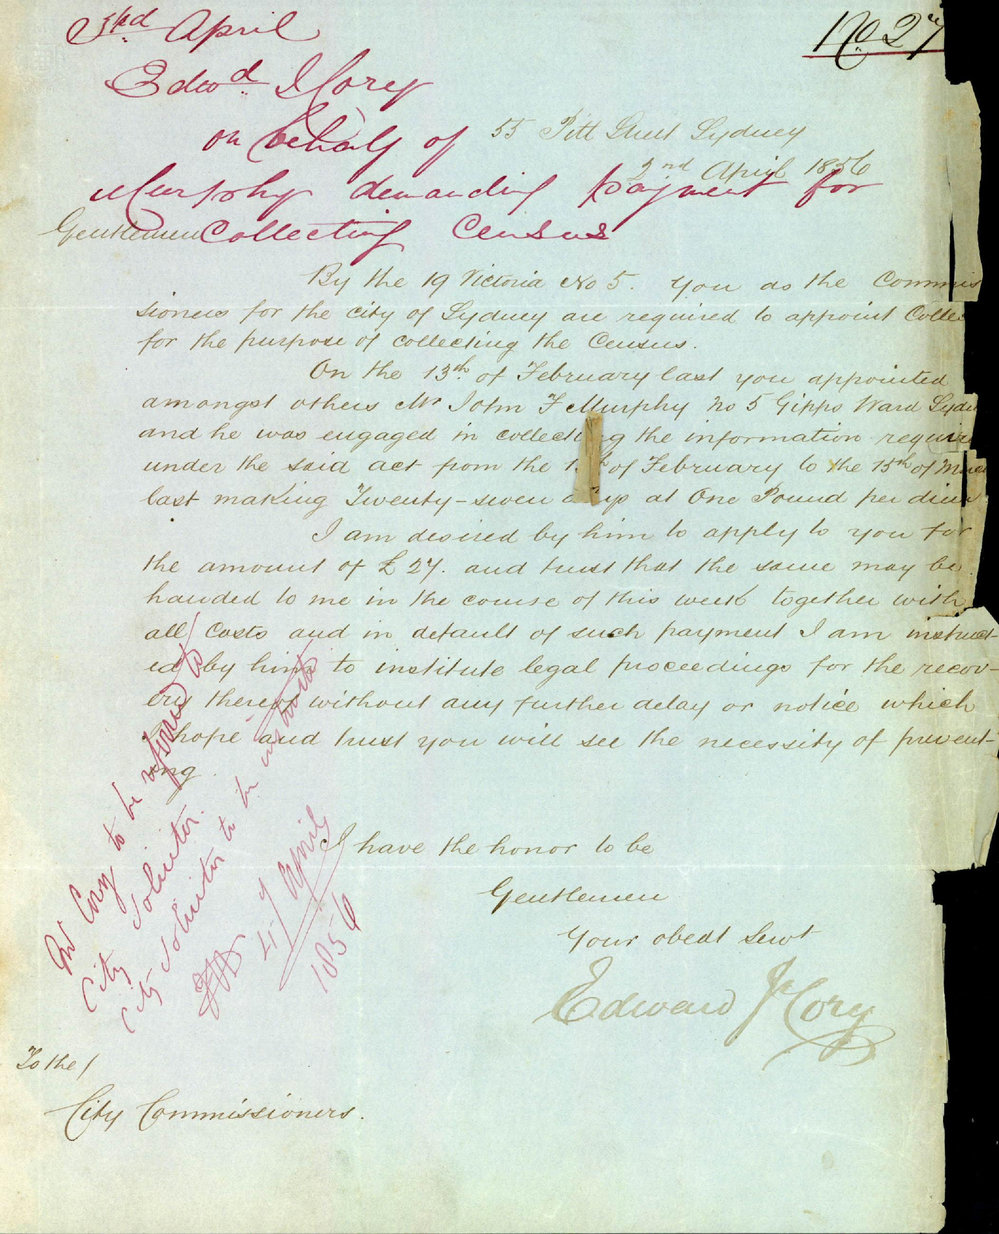 No 27
3rd April
Edwd J Cory
on behalf of
Murphy demanding payment for
collecting Census
55 Pitt Street Sydney
2nd April 1856
Gentlemen
By the 19 Victoria No 5. You as the Commis
sioners for the city of Sydney are required to appoint Collec
for the purpose of collecting the Census.
On the 13th of February last you appointed
amongst others Mr John F Murphy No 5 Gipps Ward Sydn
and he was engaged in collecting the information require
under the said act from the of February to the 15th of Marc
last making Twenty-seven at One Pound per diem
I am desired by him to apply to you for
the amount of £27. and trust that the same may be
handed to me in the course of this week together with
all costs and in default of such payment I am instruct-
ed by him to institute legal proceedings for the recov-
ery thereof without any further delay or notice which
I hope and trust you will see the necessity of prevent-
ing.
I have the honor to be
Gentlemen
Your obedt Servt
Edward J Cory
Mr Cory to be referred to
City Solicitor.
City Solicitor to be instructed
4 April
1856
To the /
City Commissioners.